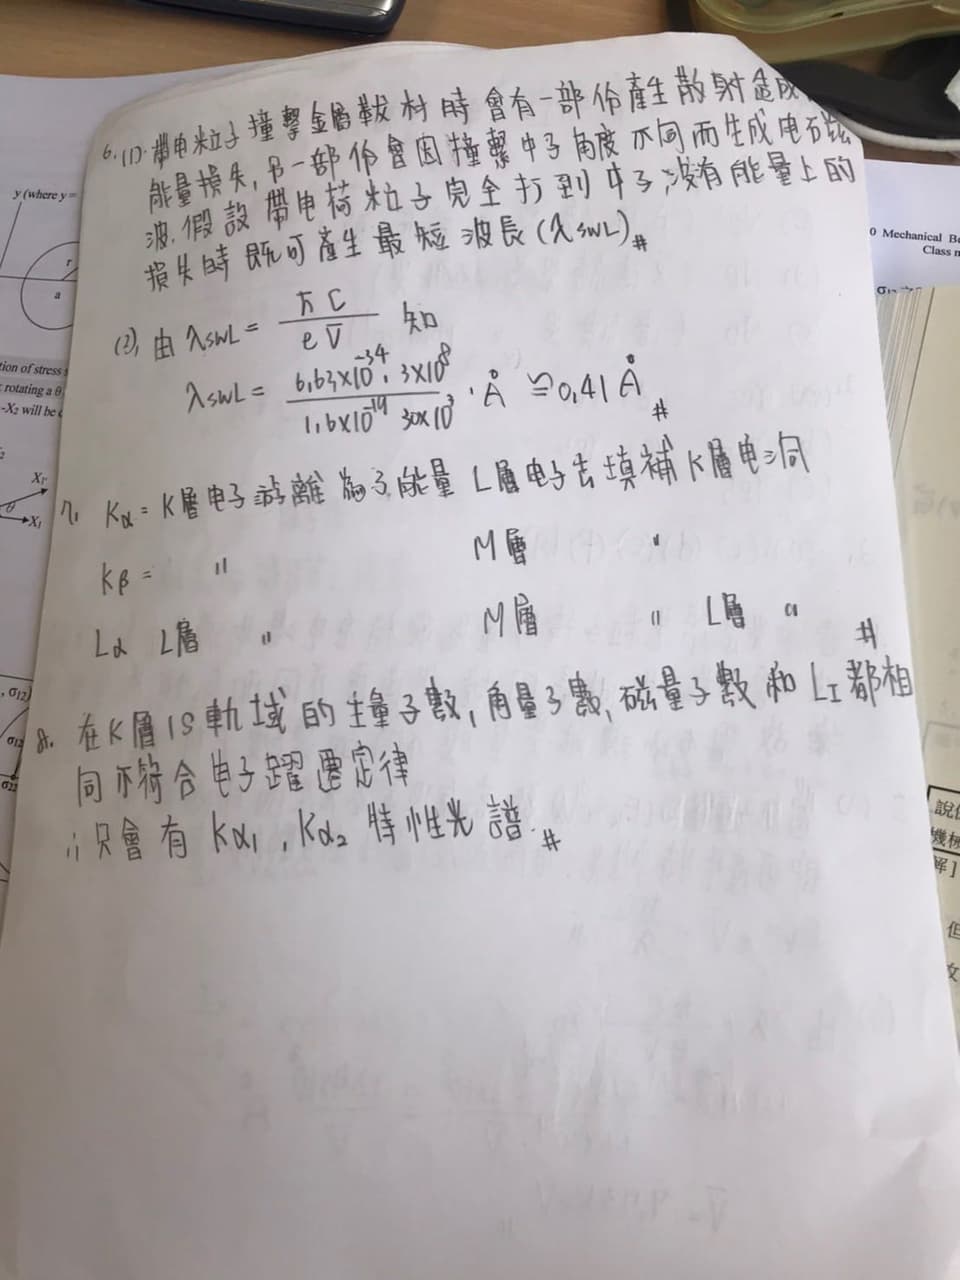 y (where y =
r
a
tion of stress
rotating a θ
-X₂ will be
X₁'
θ
X₁
, σ₁₂
σ₁₂
σ₂₂
6. (1). 帶电粒子撞擊金屬靶材時會有一部份產生散射造成
能量損失,另一部份會因撞擊中子角度不同而生成电磁
波.假設帶电荷粒子完全打到中子,沒有能量上的
損失時既可產生最短波長(λSWL)#
(2), 由 λSWL = ℏC / eV 知
λSWL = 6.63×10⁻³⁴·3×10⁸ / 1.6×10⁻¹⁹ 30×10³ · Å ≌ 0.41 Å #
7. Kα = K層电子游離為了能量 L層电子去填補K層电洞
Kβ = " M層 "
Lα L層 " M層 " L層 " #
8. 在K層1S軌域的主量子數,角量子數,磁量子數和LI都相
同不符合电子躍遷定律
∴只會有 Kα₁, Kα₂ 特性光譜. #
0 Mechanical Be
Class n
σ₁₂
說
機械
解]
但